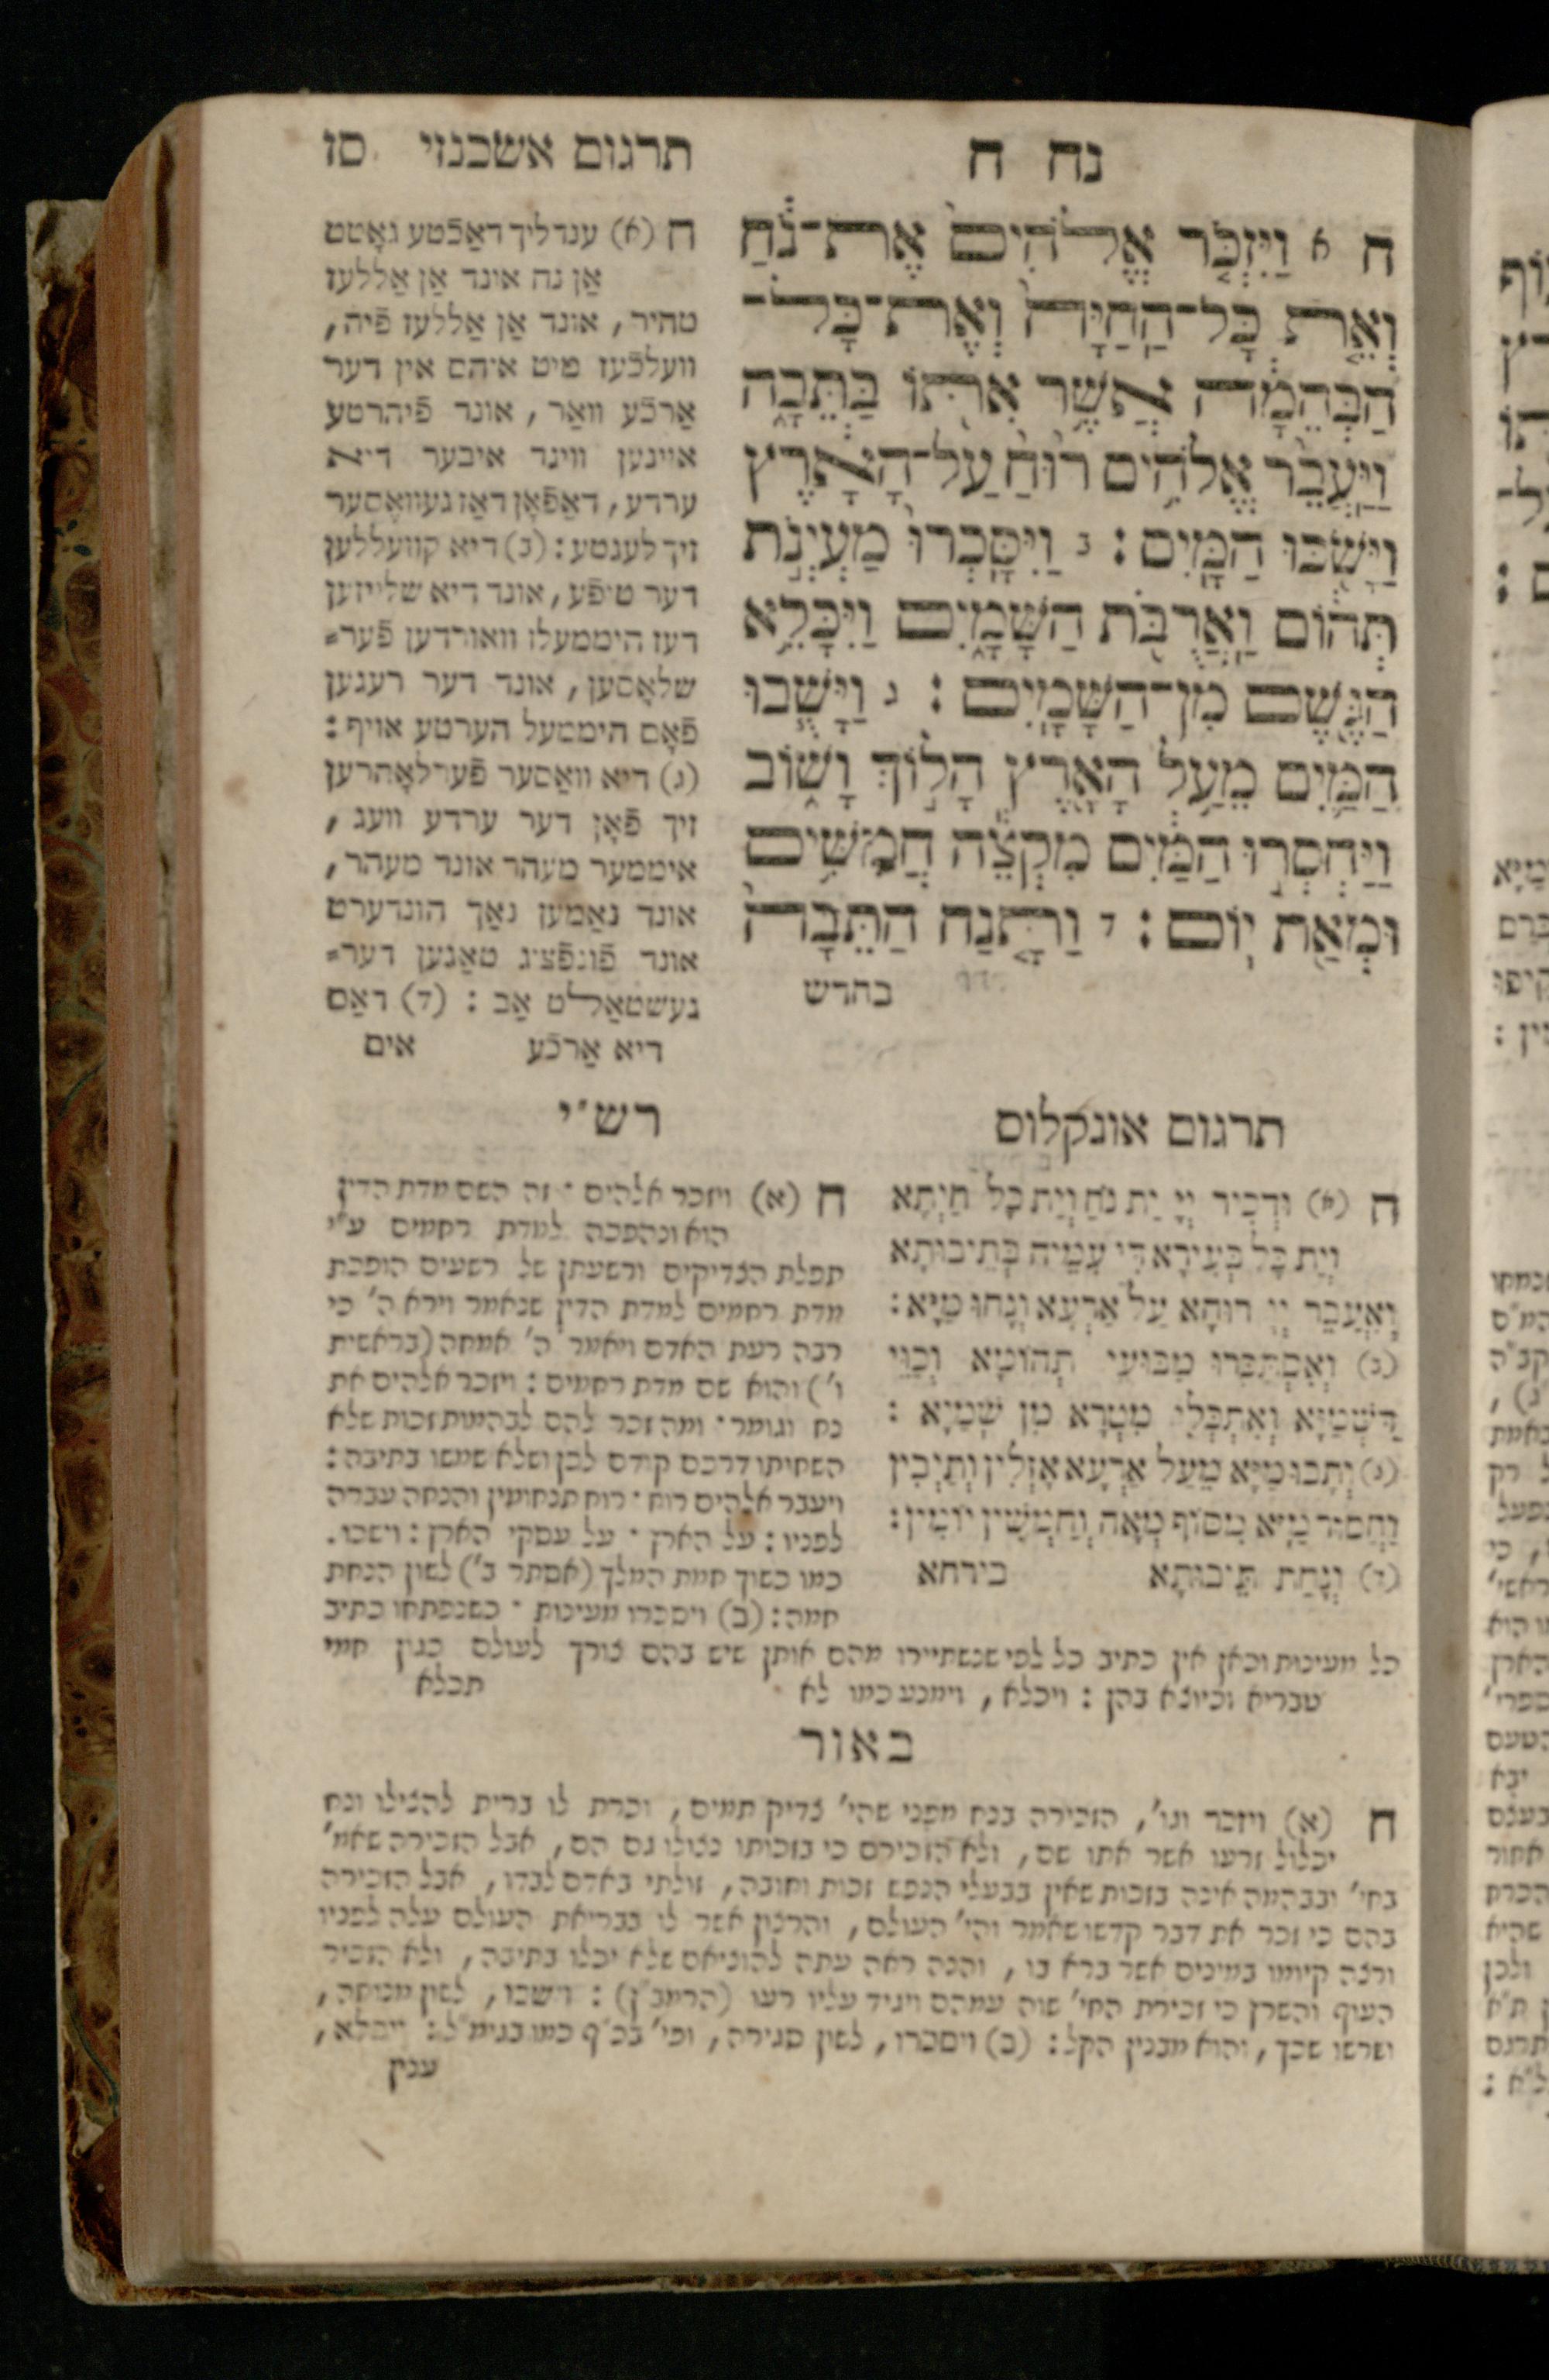 נח ח
תרגום אשכנזי סז
ח א וַיִּזְכֹּר אֱלֹהִים אֶת־נֹחַ
וְאֵת כָּל־הַחַיָּה וְאֶת־כָּל־
הַבְּהֵמָה אֲשֶׁר אִתּוֹ בַּתֵּבָה
וַיַּעֲבֵר אֱלֹהִים רוּחַ עַל־הָאָרֶץ
וַיָּשֹׁכּוּ הַמָּיִם : ב וַיִּסָּכְרוּ מַעְיְנֹת
תְּהוֹם וַאֲרֻבֹּת הַשָּׁמָיִם וַיִּכָּלֵא
הַגֶּשֶׁם מִן־הַשָּׁמָיִם : ג וַיָּשֻׁבוּ
הַמַּיִם מֵעַל הָאָרֶץ הָלוֹךְ וָשׁוֹב
וַיַּחְסְרוּ הַמַּיִם מִקְצֵה חֲמִשִּׁים
וּמְאַת יוֹם : ד וַתָּנַח הַתֵּבָה
בחדש
ח (א) ענדליך דאַכֿטע גאָטט
אַן נח אונד אַן אַללעז
טהיר, אונד אַן אַללעז פֿיה,
וועלכֿעז מיט איהם אין דער
אַרכֿע וואַר, אונד פֿיהרטע
איינען ווינד איבער דיא
ערדע, דאַפֿאָן דאַז געוואֶסער
זיך לעגטע : (ב) דיא קוועללען
דער טיפֿע, אונד דיא שלייזען
דעז היממעלז וואורדען פֿער=
שלאָסען, אונד דער רעגען
פֿאָם היממעל הערטע אויף :
(ג) דיא וואַסער פֿערלאָהרען
זיך פֿאָן דער ערדע וועג,
איממער מעהר אונד מעהר,
אונד נאַמען נאַך הונדערט
אונד פֿונפֿציג טאַגען דער=
געשטאַלט אַב : (ד) דאַס
דיא אַרכֿע אים
תרגום אונקלוס
ח (א) וּדְכִיר יְיָ יַת נֹחַ וְיַת כָּל חַיְתָא
וְיַת כָּל בְּעִירָא דִּי עִמֵּיהּ בְּתֵיבוּתָא
וְאַעֲבַר יְיָ רוּחָא עַל אַרְעָא וְנָחוּ מַיָּא :
(ב) וְאִסְתְּכַרוּ מַבּוּעֵי תְהוֹמָא וְכַוֵּי
דִשְׁמַיָּא וְאִתְכְּלִי מִטְרָא מִן שְׁמַיָּא :
(ג) וְתָבוּ מַיָּא מֵעַל אַרְעָא אָזְלִין וְתָיְבִין
וַחֲסִירוּ מַיָּא מִסּוֹף מְאָה וְחַמְשִׁין יוֹמִין :
(ד) וְנָחַת תֵּיבוּתָא בירחא
רש״י
ח (א) ויזכר אלהים . זה השם מדת הדין
הוא ונהפכה למדת רחמים ע״י
תפלת הצדיקים ורשעתן של רשעים הופכת
מדת רחמים למדת הדין שנאמר וירא ה׳ כי
רבה רעת האדם ויאמר ה׳ אמחה (בראשית
ו׳) והוא שם מדת רחמים : ויזכר אלהים את
נח וגומר . ומה זכר להם לבהמות זכות שלא
השחיתו דרכם קודם לכן ושלא שמשו בתיבה :
ויעבר אלהים רוח . רוח תנחומין והנחה עברה
לפניו : על הארץ . על עסקי הארץ : וישכו .
כמו כשוך חמת המלך (אסתר ב׳) לשון הנחת
חמה : (ב) ויסכרו מעינות . כשנפתחו כתיב
כל מעינות וכאן אין כתיב כל לפי שנשתיירו מהם אותן שיש בהם צורך לעולם כגון חמי
טבריא וכיוצא בהן : ויכלא, וימנע כמו לא תכלא
באור
ח (א) ויזכר וגו׳, הזכירה בנח מפני שהי׳ צדיק תמים, וכרת לו ברית להצילו ונח
יכלול זרעו אשר אתו שם, ולא הזכירם כי בזכותו נצולו גם הם, אבל הזכירה שאמ׳
בחי׳ ובבהמה אינה בזכות שאין בבעלי הנפש זכות וחובה, זולתי באדם לבדו, אבל הזכירה
בהם כי זכר את דבר קדשו שאמר והי׳ העולם, והרצון אשר לו בבריאת העולם עלה לפניו
ורצה קיומו במינים אשר ברא בו, והנה ראה עתה להוציאם שלא יכלו בתיבה, ולא הזכיר
העוף והשרץ כי זכירת החי׳ שוה עמהם ויגיד עליו רעו (הרמב״ן) : וישכו, לשון מנוחה,
ושרשו שכך, והוא מבנין הקל : (ב) ויסכרו, לשון סגירה, וכי׳ בכ״ף כמו בגימ״ל : ויכלא,
ענין